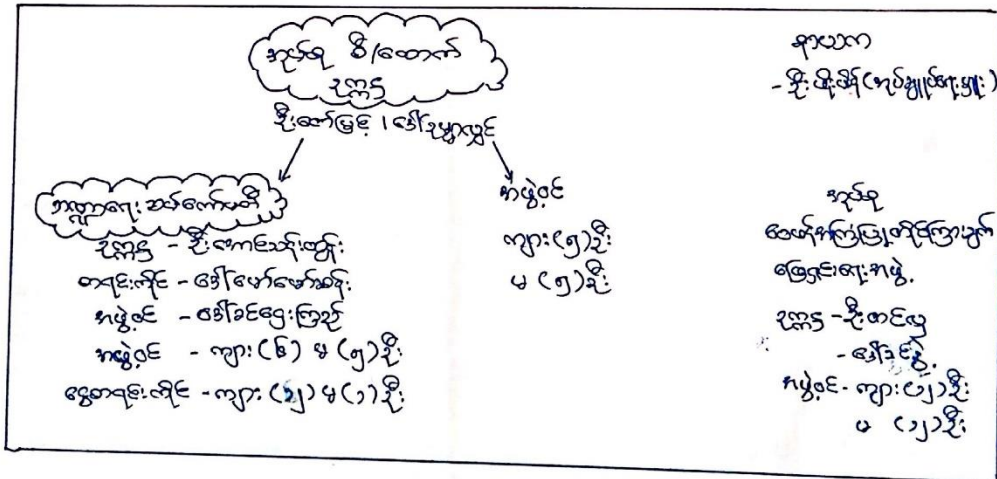 အုပ်စု စီ/ထောက်
ဥက္ကဋ္ဌ
ဦးဇော်မြင့် / ဒေါ်ဥမ္မာလွင်
ဘဏ္ဍာရေး ဆပ်ကော်မတီ
ဥက္ကဋ္ဌ - ဦးအောင်သန်းထွန်း
စာရင်းကိုင် - ဒေါ်မော်မော်ဆန်း
အဖွဲ့ဝင် - ဒေါ်ခင်ဌေးကြည်
အဖွဲ့ဝင် - ကျား (၆) မ (၅) ဦး
ငွေစာရင်းကိုင် - ကျား (၁၂) မ (၁) ဦး
အဖွဲ့ဝင်
ကျား (၅) ဦး
မ (၅) ဦး
နာယက
- ဦးစိုးမိန် (အုပ်ချုပ်ရေးမှူး)
အုပ်စု
ဝေဖန်အကြံပြုတိုင်ကြားချက်
ဖြေရှင်းရေးအဖွဲ့
ဥက္ကဋ္ဌ - ဦးတင်လှ
- ဒေါ်ခင်နွဲ့
အဖွဲ့ဝင် - ကျား (၁၂) ဦး
မ (၁၂) ဦး